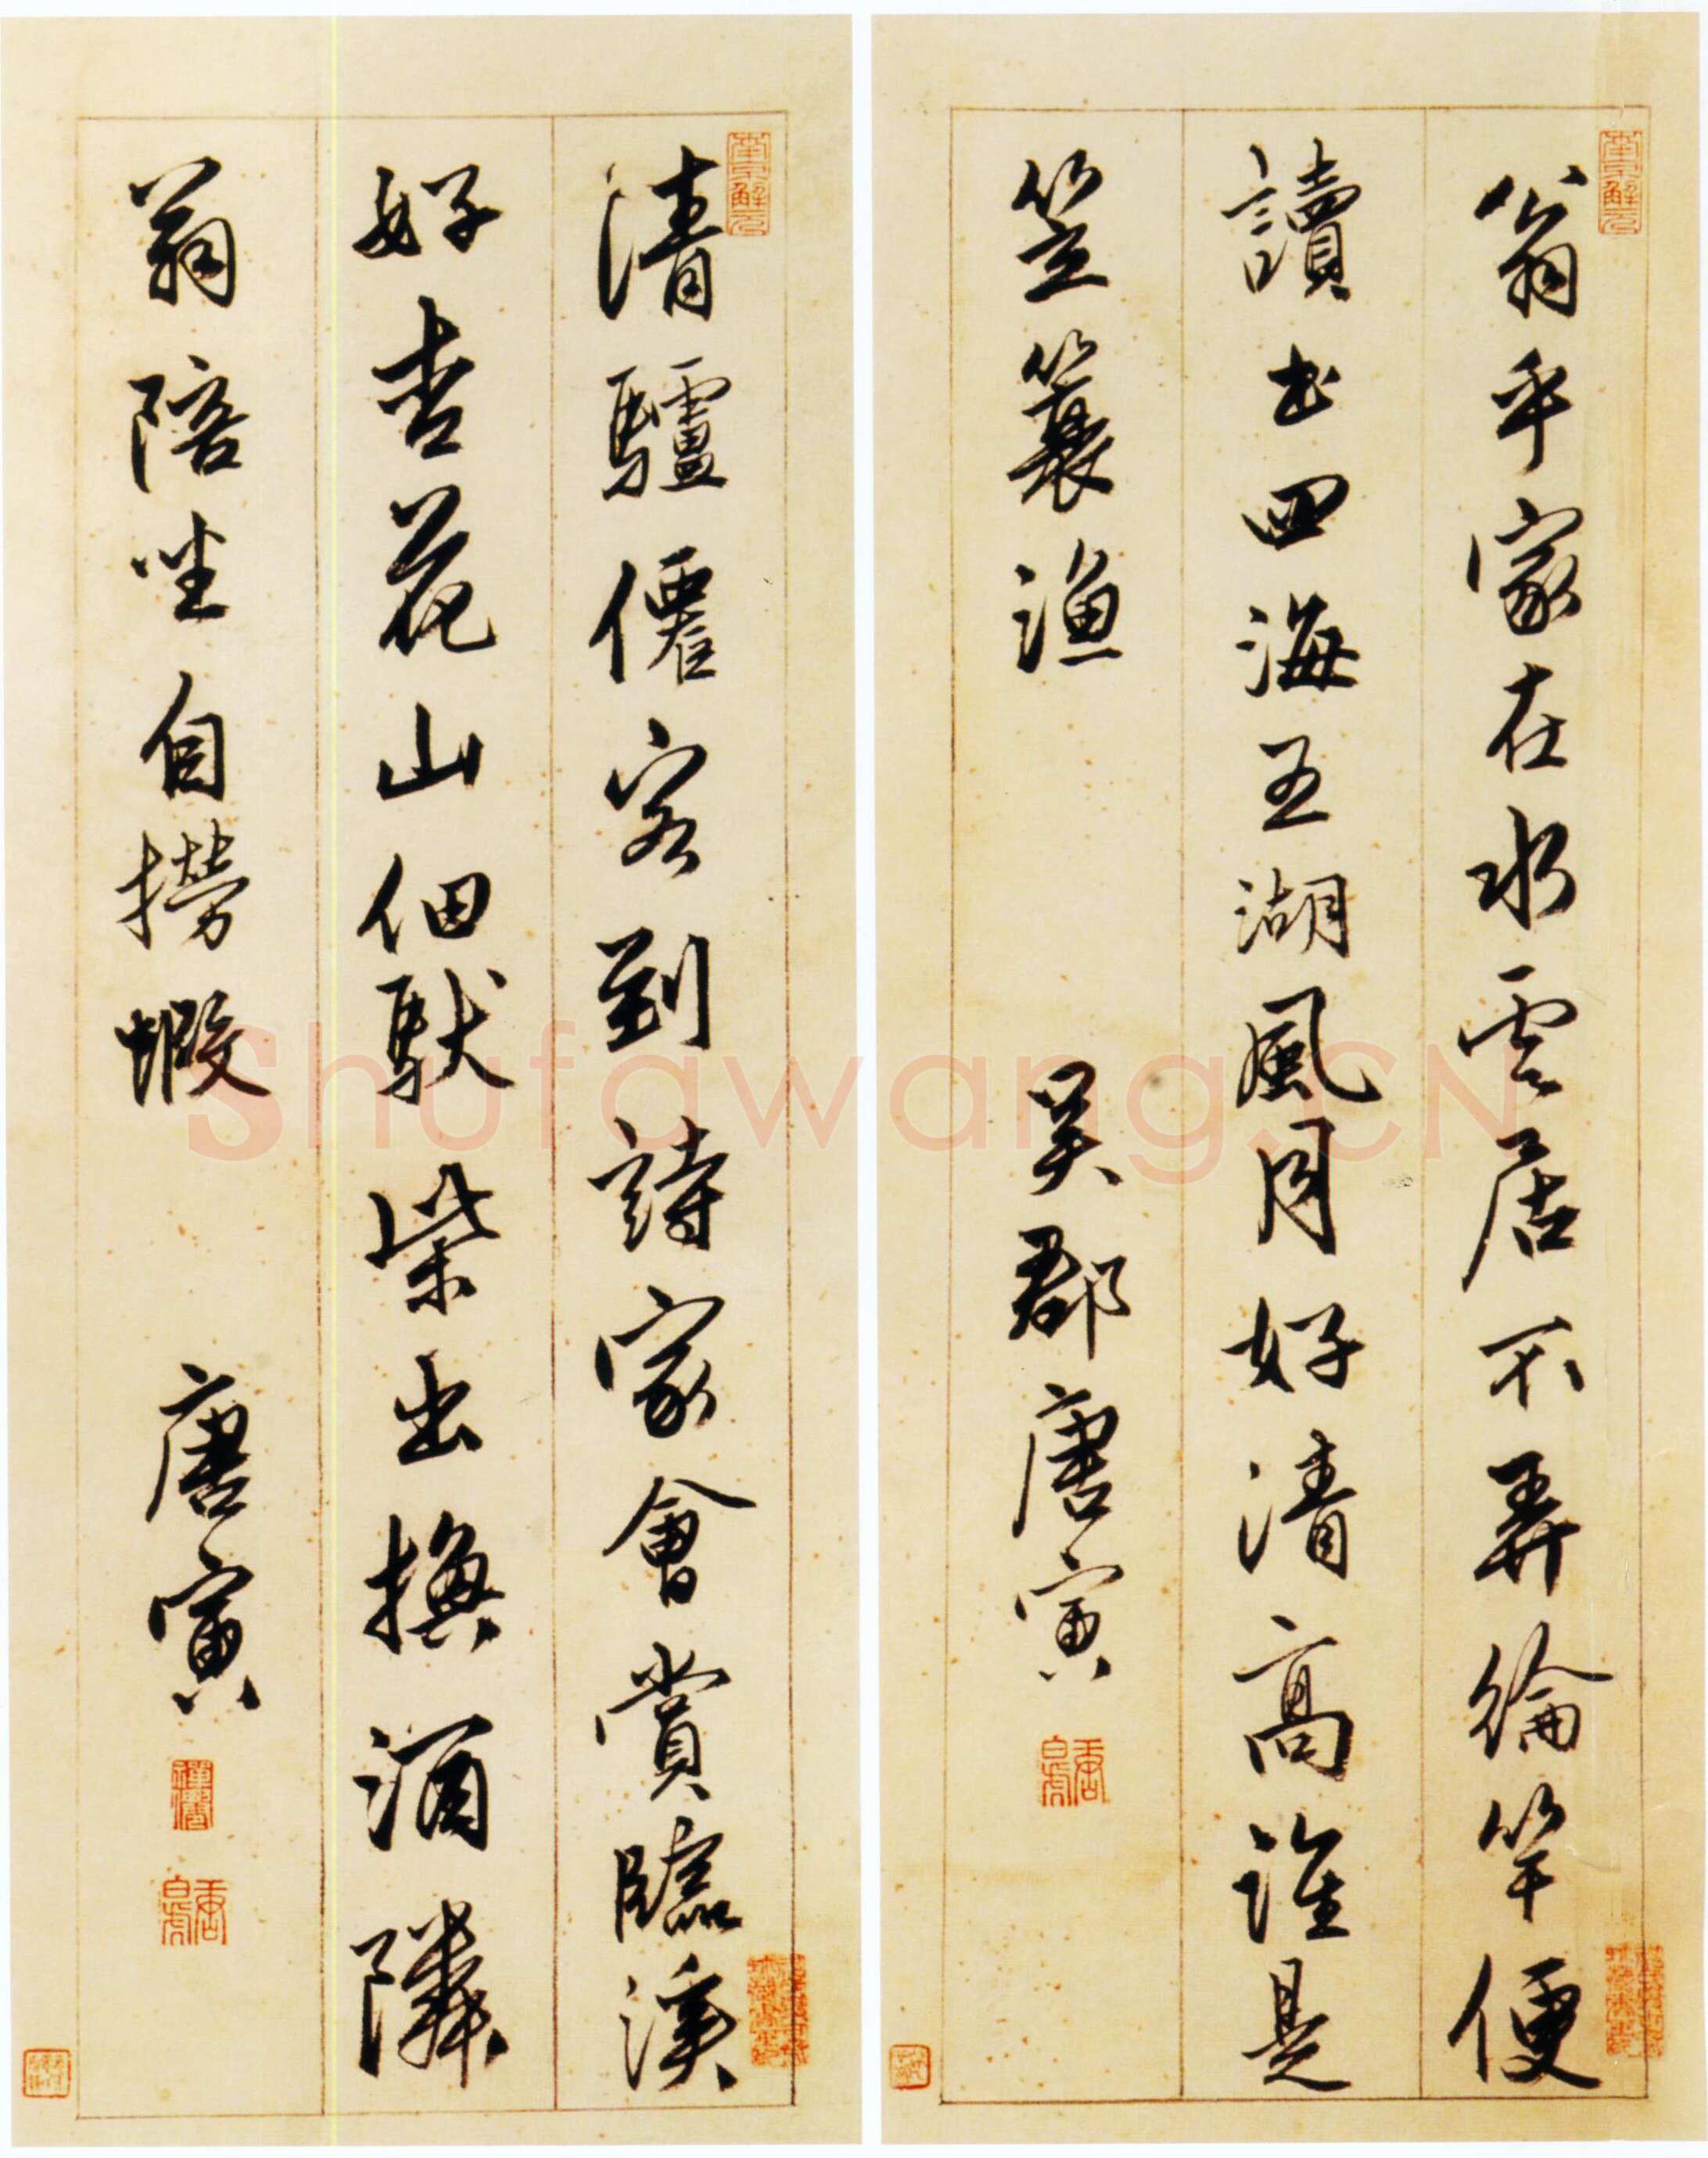 翁乎家在水雲居不弄綸竿便
讀書四海五湖風月好清高誰是
笠簑漁
吴郡唐寅
清驢僊客到詩家會賞臨溪
好杏花山佃馱柴出換酒隣
翁陪坐自撈蝦
唐寅
南京解元
南京解元
Shufawang.CN